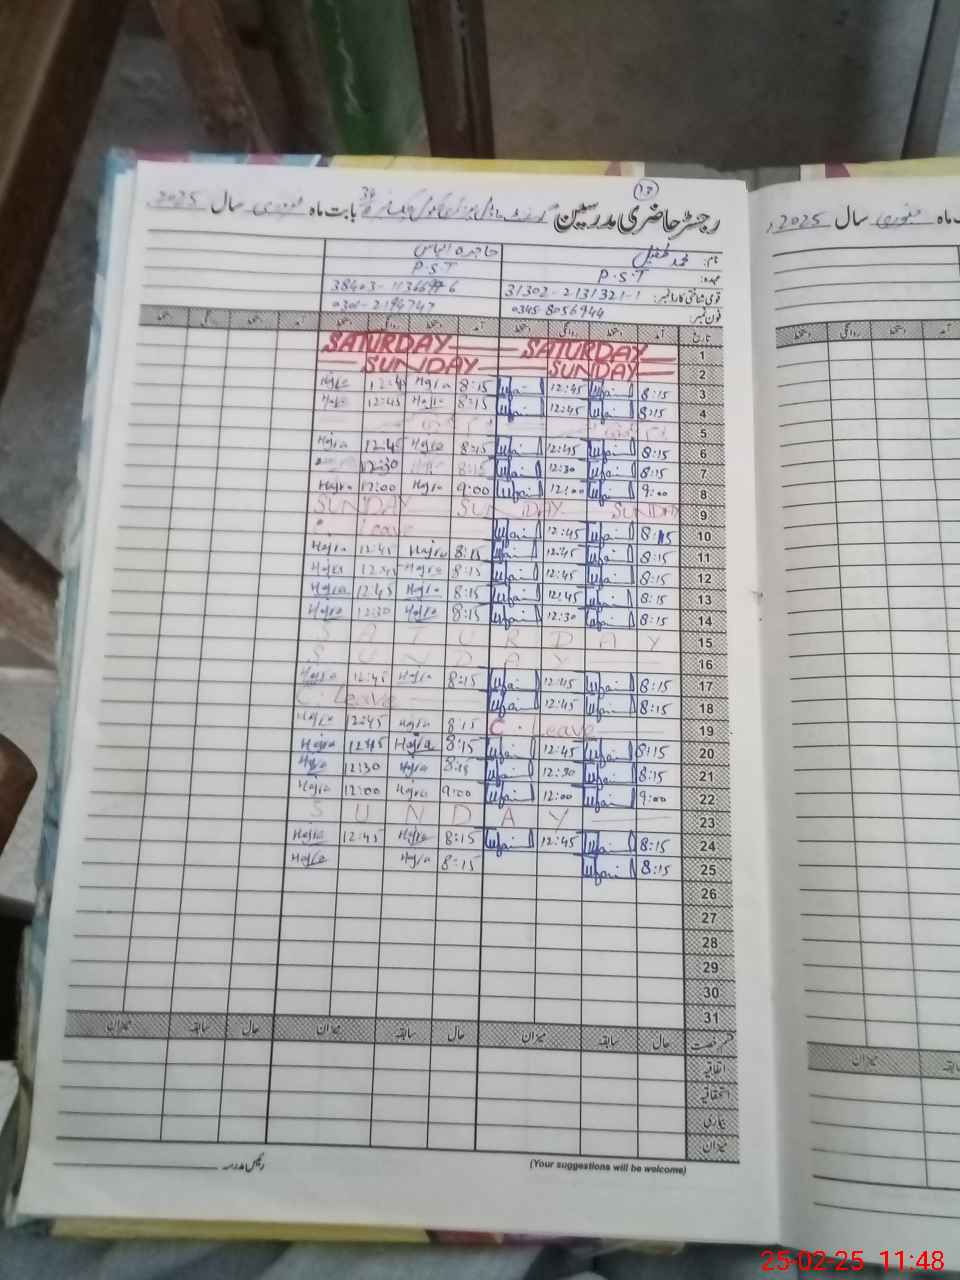 13
رجسٹر حاضری مدرسین گورنمنٹ بابت ماہ فروری سال 2025
نام: محمد طفیل حاجرہ الیاس
عہدہ: P.S.T P.S.T
قومی شناختی کارڈ نمبر: 31302-2131321-1
فون نمبر: 0345-8056944
تاریخ آمد دستخط روانگی دستخط آمد دستخط روانگی دستخط آمد دستخط روانگی دستخط
1 SATURDAY SATURDAY
2 SUNDAY SUNDAY
3 8:15 12:45 8:15 Hajra 12:45 Hajra
4 8:15 12:45 8:15 Hajra 12:45 Hajra
5
6 8:15 12:45 8:15 Hajra 12:45 Hajra
7 8:15 12:30 8:15 12:30
8 9:00 12:00 9:00 Hajra 12:00 Hajra
9 SUNDAY SUNDAY SUNDAY
10 8:15 12:45 Leave
11 8:15 12:45 8:15 Hajra 12:45 Hajra
12 8:15 12:45 8:15 Hajra 12:45 Hajra
13 8:15 12:45 8:15 Hajra 12:45 Hajra
14 8:15 12:30 8:15 Hajra 12:30 Hajra
15 SATURDAY
16 SUNDAY
17 8:15 12:45 8:15 Hajra 12:45 Hajra
18 8:15 12:45 C. Leave
19 C. Leave 8:15 Hajra 12:45 Hajra
20 8:15 12:45 8:15 Hajra 12:45 Hajra
21 8:15 12:30 8:15 Hajra 12:30 Hajra
22 9:00 12:00 9:00 Hajra 12:00 Hajra
23 SUNDAY
24 8:15 12:45 8:15 Hajra 12:45 Hajra
25 8:15 8:15 Hajra Hajra
26
27
28
29
30
31
قسم رخصت حال سابقہ میزان حال سابقہ میزان حال سابقہ میزان
اتفاقیہ
استحقاقیہ
بیماری
میزان
(Your suggestions will be welcome)
رئیس مدرسہ
ماہ فروری سال 2025
دستخط روانگی دستخط
میزان
25-02-25 11:48